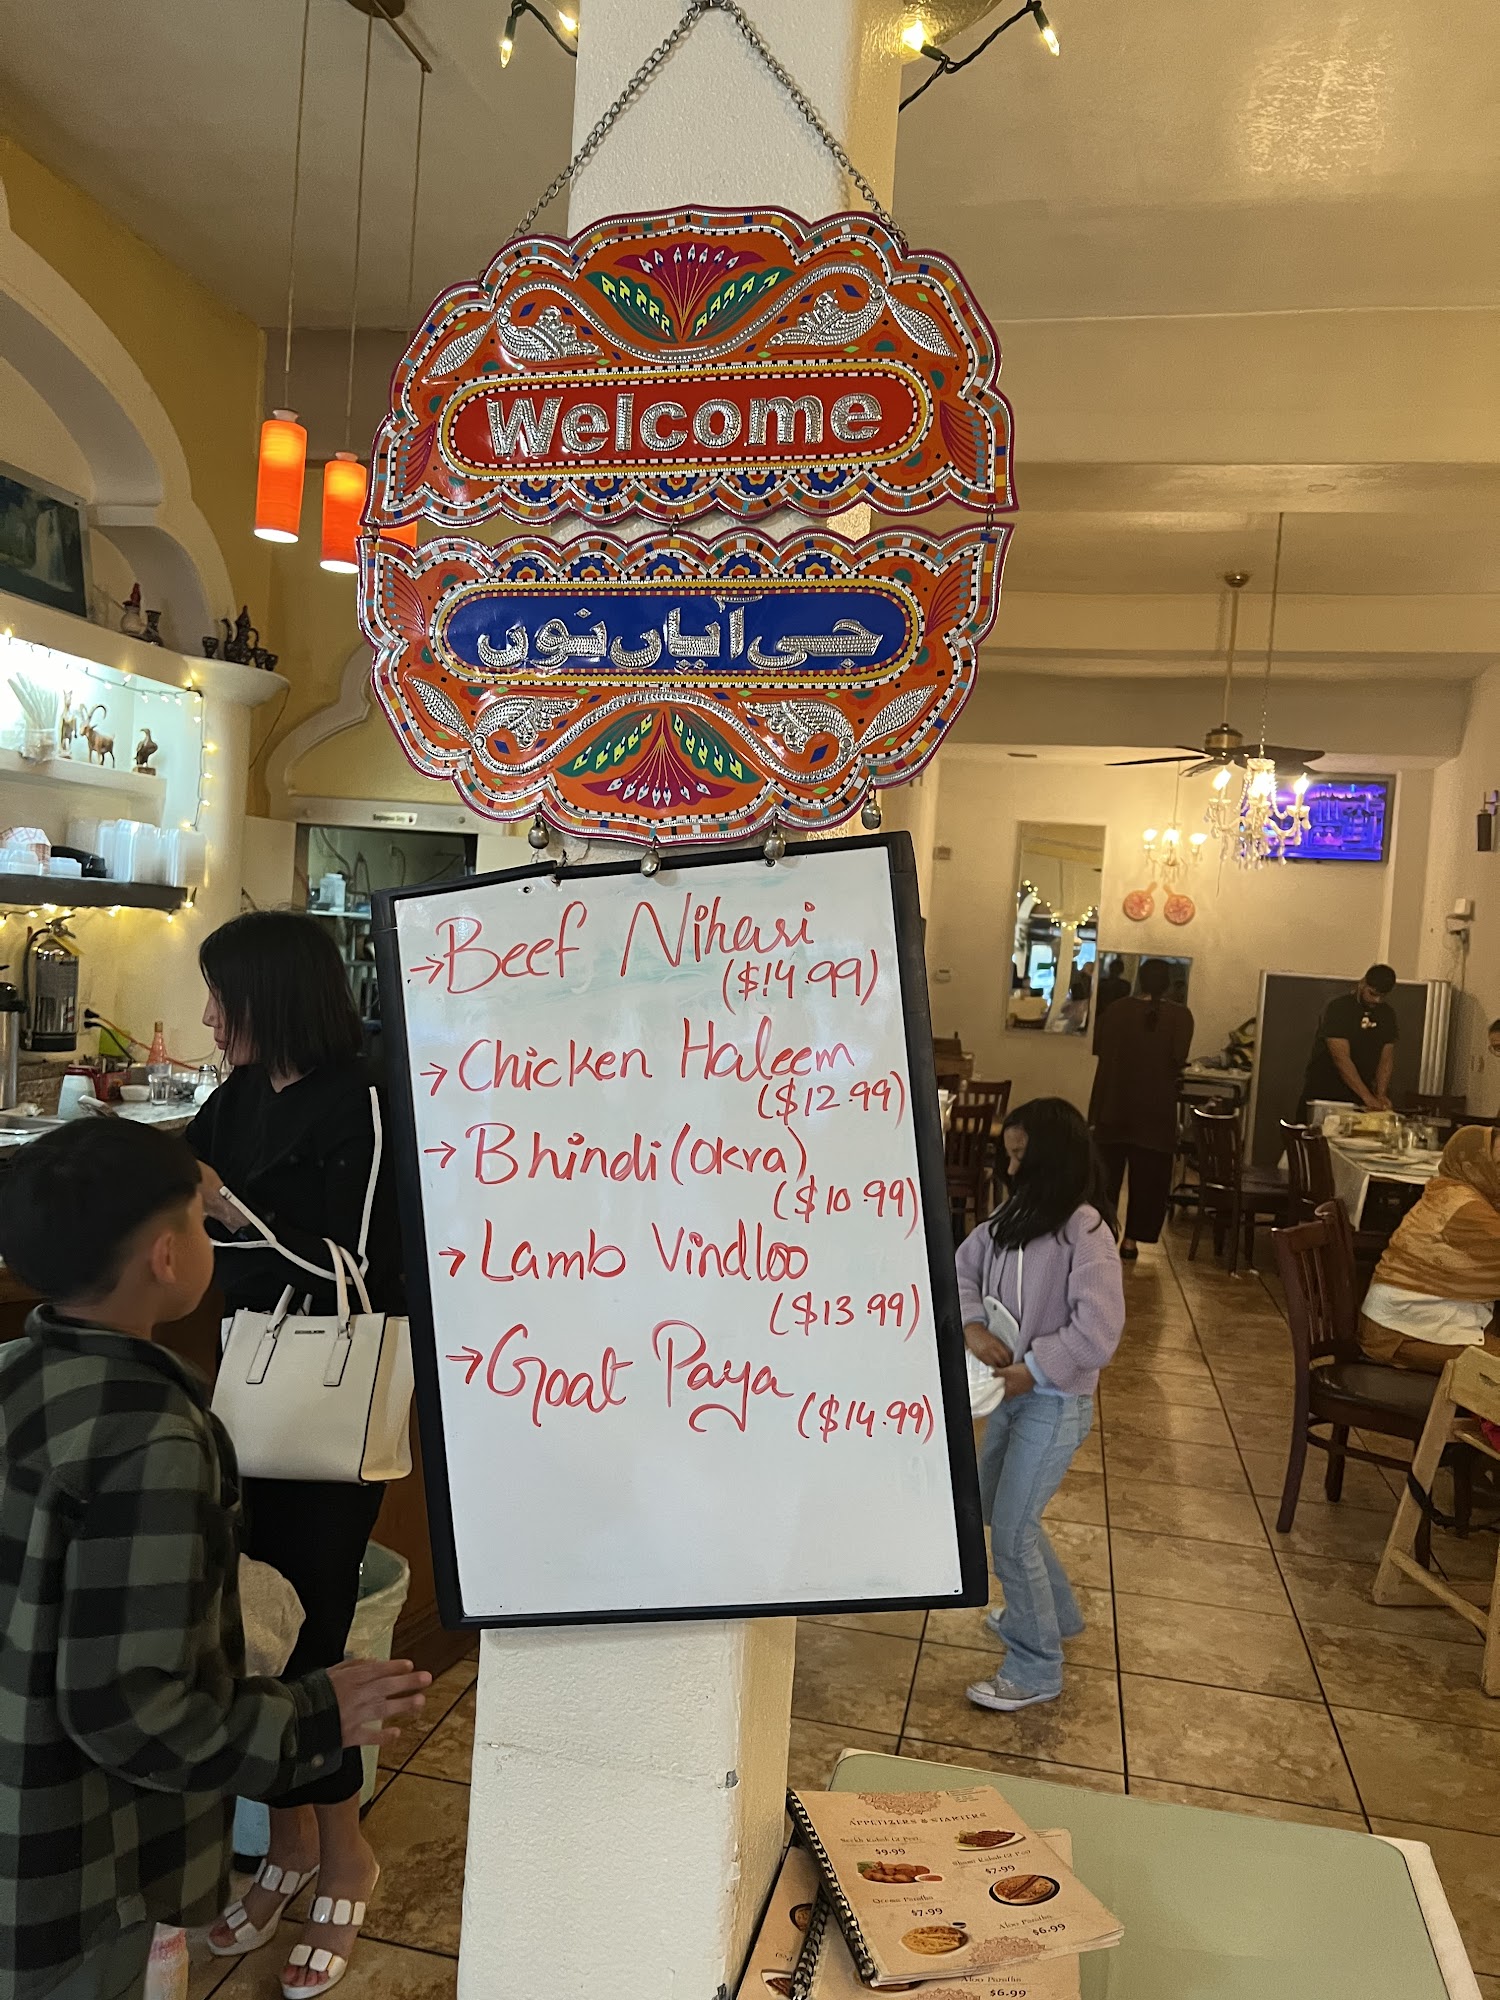 Welcome
جی آیاں نوں
→Beef Nihari
($14.99)
→ Chicken Haleem
($12.99)
→ Bhindi (Okra)
($10.99)
→ Lamb Vindloo
($13.99)
→ Goat Paya
($14.99)
APPETIZERS & STARTERS
Seekh Kabab (2 Pcs)
$9.99
Shami Kabab (2 Pcs)
$7.99
$7.99
Aloo Paratha
$6.99
Aloo Paratha
$6.99